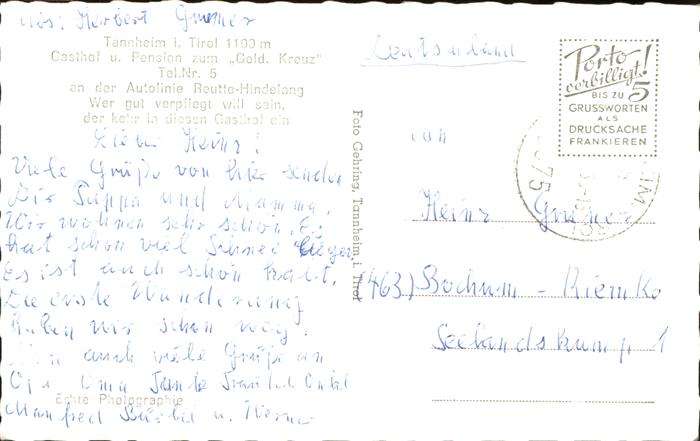 Abs: Herbert Gremer
Tannheim i. Tirol 1100 m
Gasthof u. Pension zum „Gold. Kreuz"
Tel.Nr. 5
an der Autolinie Reutte-Hindelang
Wer gut verpflegt will sein,
der kehr in diesen Gasthof ein
Lieber Heinz!
Viele Grüße von hier senden
Dir Pappa und Mamma.
Wir wohnen sehr schön. Es
hat schon viel Schnee liegen
Es ist auch schön kalt.
Die erste Wanderung
haben wir schon weg.
auch viele Grüße an
Opa Oma Tante Onkel
Manfred u. Werner
Echte Photographie
Foto Gehring, Tannheim i. Tirol
Deutschland
Porto
verbilligt!
BIS ZU 5
GRUSSWORTEN
ALS
DRUCKSACHE
FRANKIEREN
an
Heinz Gremer
(463) Bochum - Riemke
Seelandskamp 1